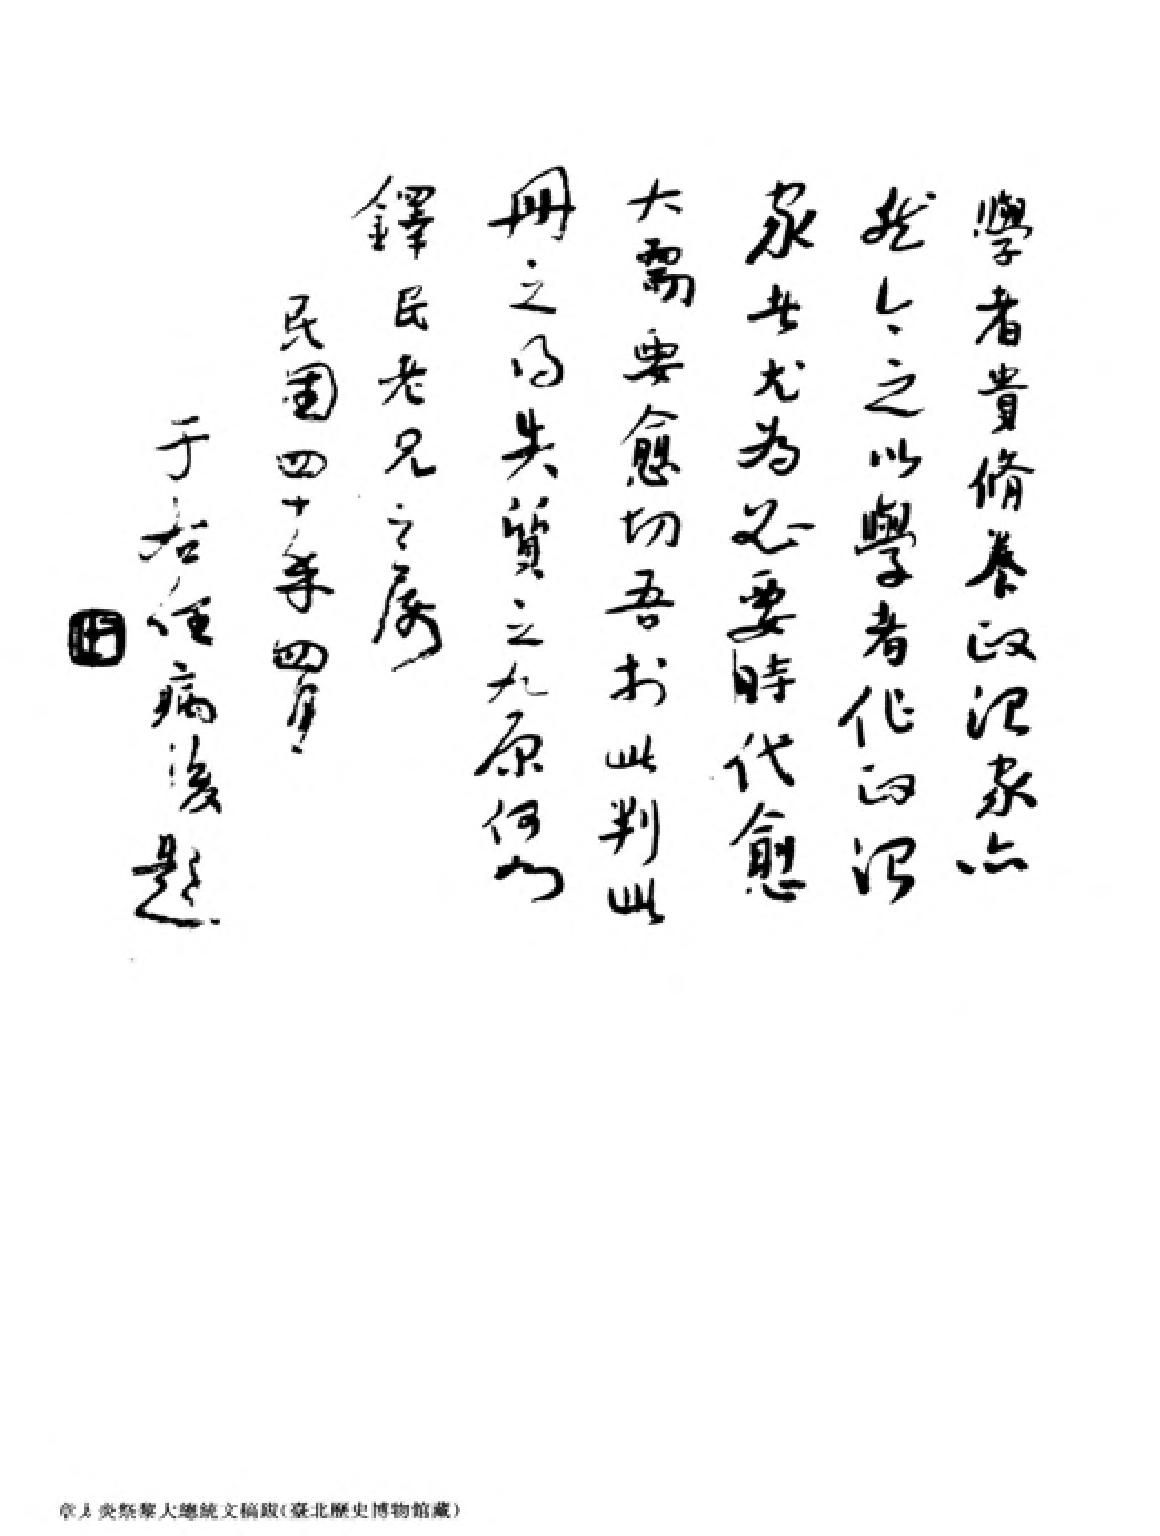 學者貴脩養政治家亦
然今之以學者作政治
家者尤為必要時代愈
大需要愈切吾於此判此
冊之得失質之九原何如
鐸民老兄之屬
民國四十年四月
于右任病後題
章太炎祭黎大總統文稿跋(臺北歷史博物館藏)